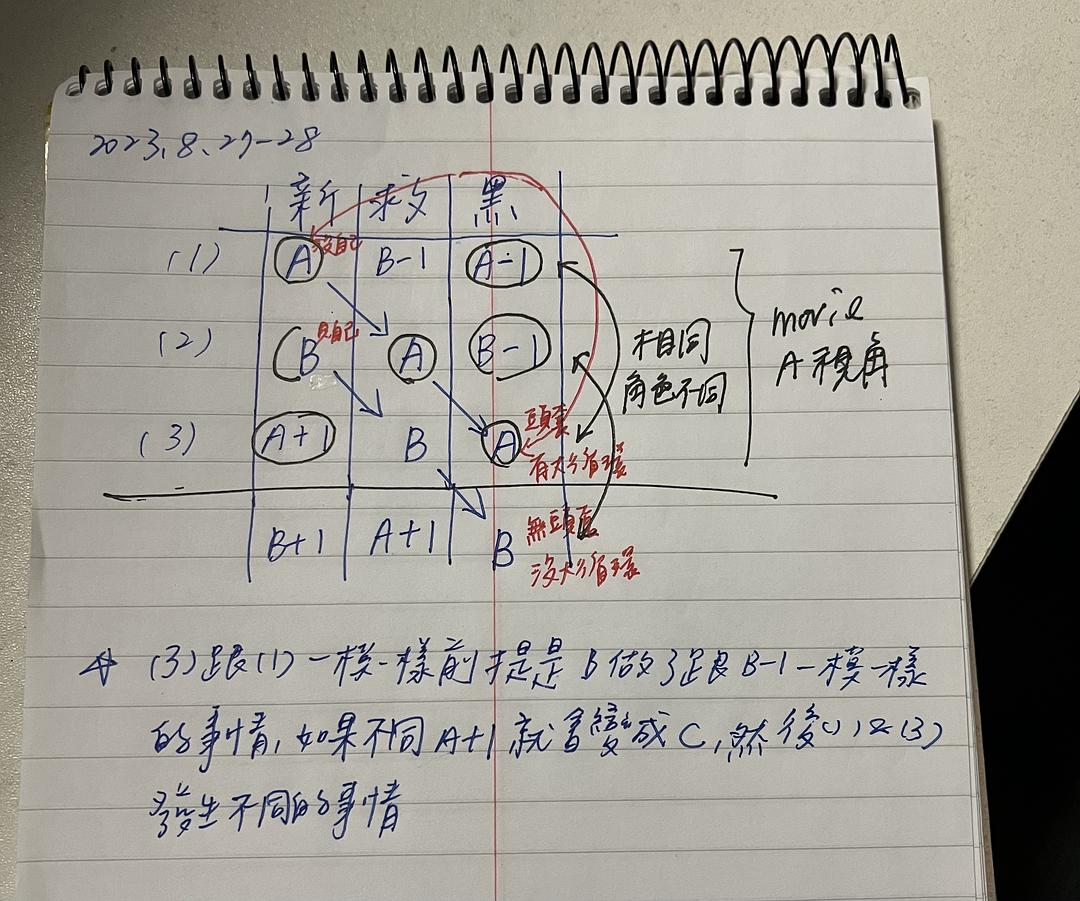 2023.8.27-28
新 救 黑
(1) A 沒自己 B-1 A-1
(2) B 見自己 A B-1
相同
角色不同
movie
A視角
(3) A+1 B A 頭套
有大循環
B+1 A+1 B 無頭套
沒大循環
(3)跟(1)一模一樣前提是B做了跟B-1一模一樣
的事情,如果不同A+1就會變成C,然後(1)&(3)
發生不同的事情